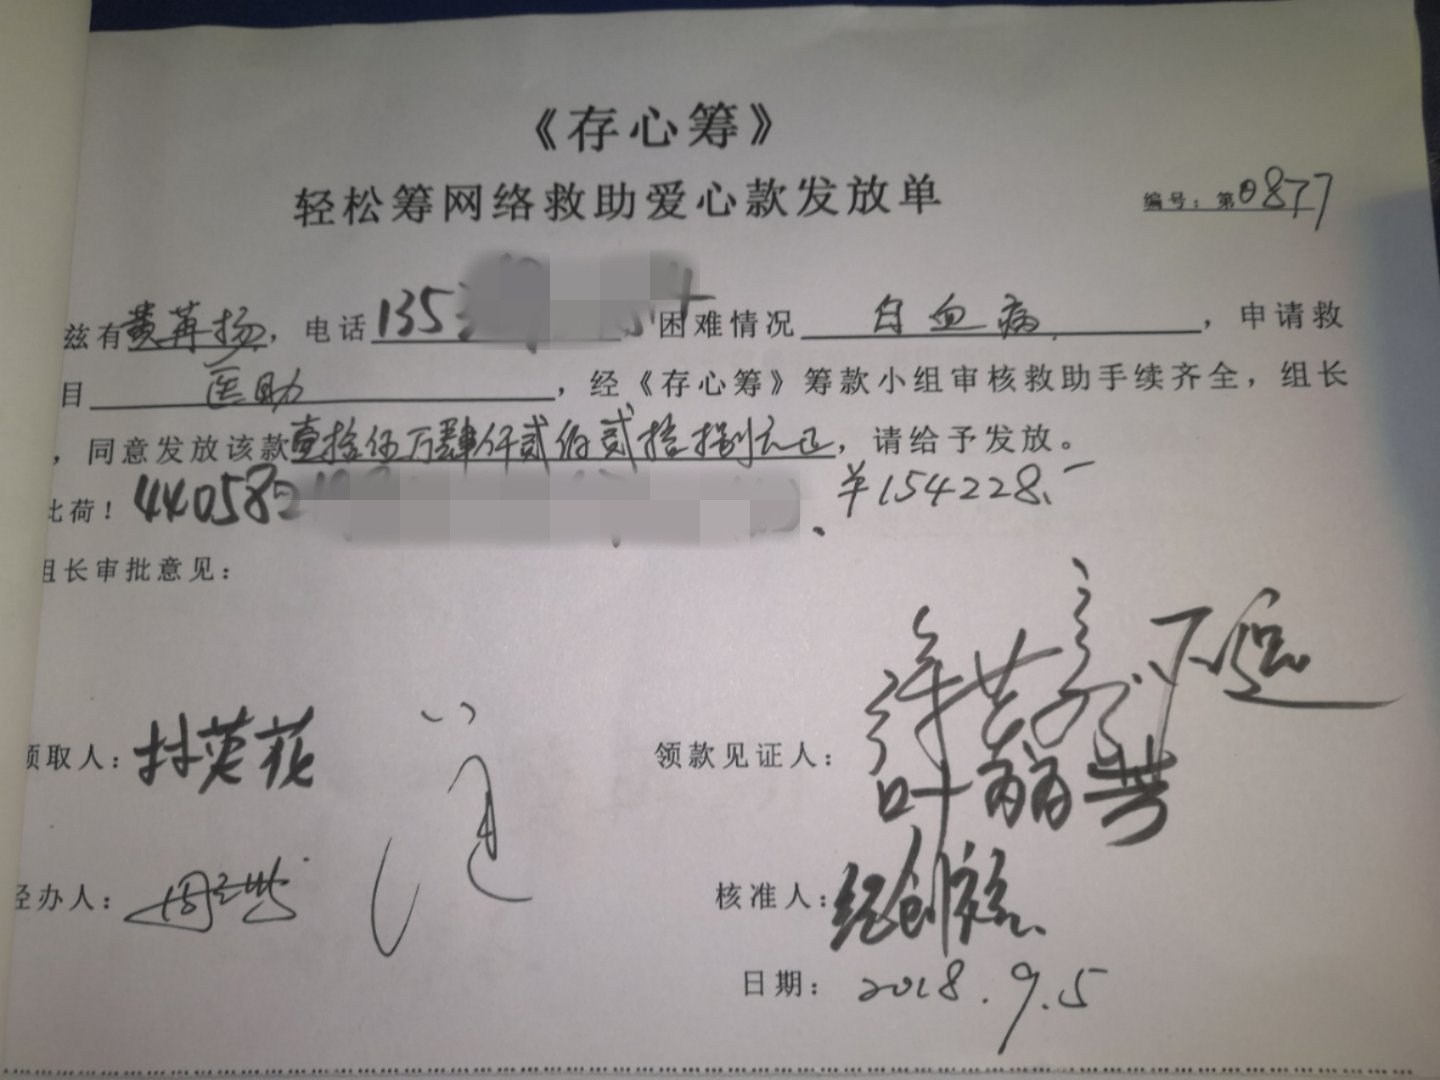 《存心筹》
轻松筹网络救助爱心款发放单
编号：第0877
兹有黄苒扬，电话135 困难情况 白血病，申请救
目 医助，经《存心筹》筹款小组审核救助手续齐全，组长
，同意发放该款壹拾伍万肆仟贰佰贰拾捌元正，请给予发放。
此荷！440582 ￥154228.-
组长审批意见：
领取人：林英花 领款见证人：
叶丽芳
经办人： 核准人：
日期：2018.9.5